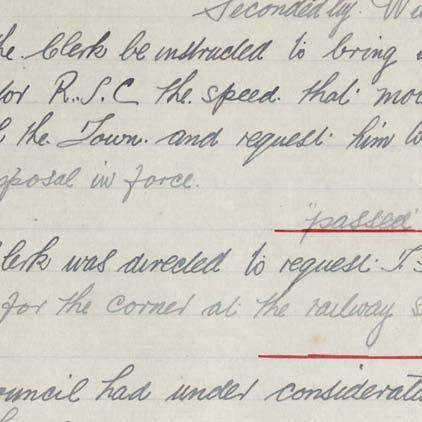 Seconded by. Wi
he Clerk be instructed to bring
tor R.S.C the speed. that mo
the. Town. and request him to
posal in force.
"passed"
lerk was directed to request.
for the corner at the railway
ouncil had under considerati